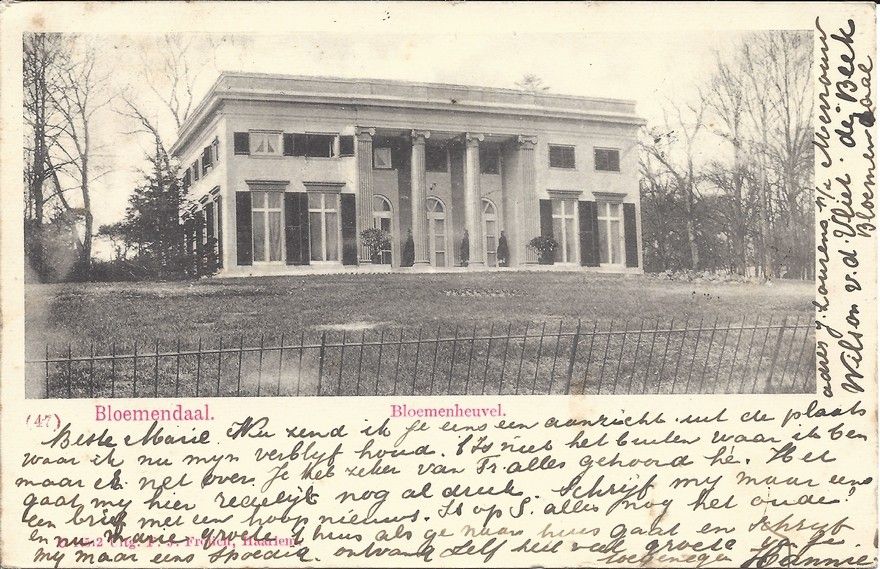 (47) Bloemendaal. Bloemenheuvel.
Beste Marie. Nu zend ik je eens een aanzicht uit de plaats
waar ik nu myn verblyf houd. 't Is niet het buiten waar ik ben
maar er net over. Je hebt zeker van Tr. alles gehoord hè. Het
gaat my hier redelyk nog al druk. Schryf my maar eens
een brief met een hoop nieuws. Is op S. alles nog het oude!
en nu Marie groet thuis als ge naar huis gaat en schryf
my maar eens spoedig. ontvang zelf heel veel groete v. je
toegenegen Hannie.
Uitg. P. J. French, Haarlem.
adres J. Laurens p/a Mevrouw
Wilson v.d. Vliet. de Beek
Bloemendaal